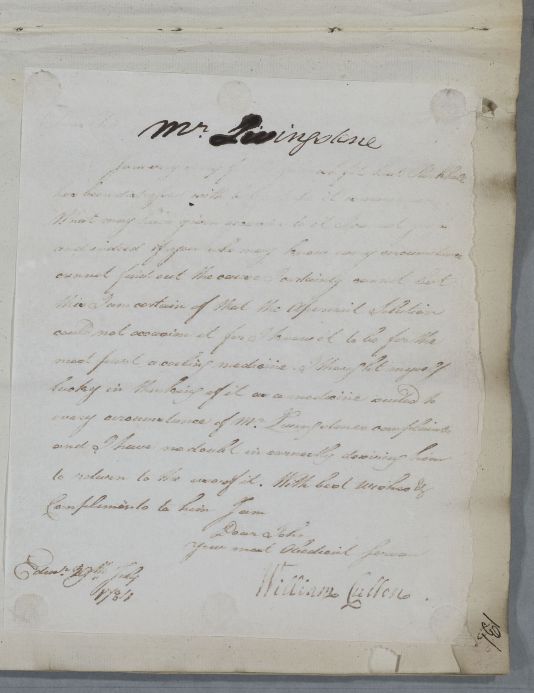 Mr. Livingstone
I am very
has been
What may have given occasion to it I do not
and indeed if you who may know every circumstance
cannot find out the cause I certainly cannot but
this I am certain of that the Aperient Solution
could not occasion it for I know it to be for the
most part a cooling medicine. I thought myself
lucky in thinking of it as a medicine suited to
every circumstance of Mr Livingstones complaints
and I have no doubt in earnestly desiring him
to return to the use of it. With best wishes &
Compliments to him I am
Dear John
your most Obedient Servan
William Cullen
Edinr. 29th July
1784